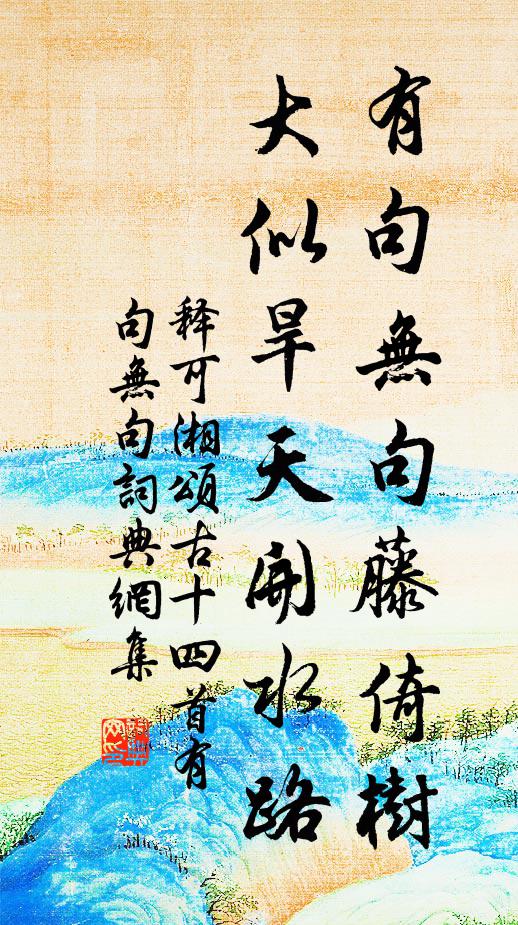 有句無句藤倚樹
大似旱天開水路
釋可湘頌古十四首有
句無句詞典網集